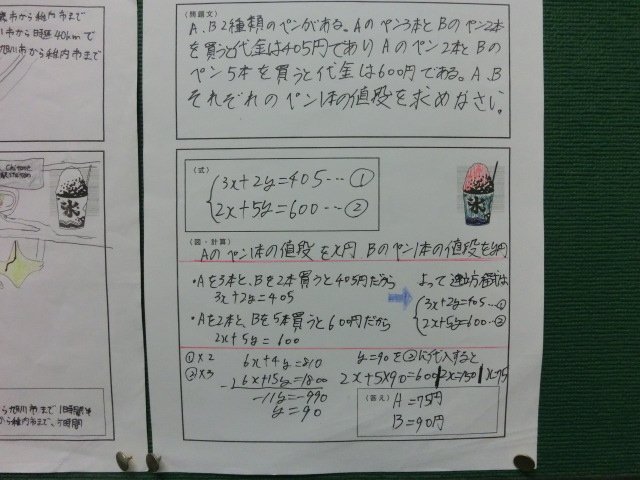 市から稚内市まで
川市から時速40kmで
旭川市から稚内市まで
旭川市まで1時間半
から稚内市まで、5時間
(問題文)
A、B2種類のペンがある。Aのペン3本とBのペン2本
を買うと代金は405円でありAのペン2本とBの
ペン5本を買うと代金は600円である。A、B
それぞれのペン1本の値段を求めなさい。
(式)
3x+2y=405…①
2x+5y=600…②
氷
氷
(図・計算)
Aのペン1本の値段をx円 Bのペン1本の値段をy円
・Aを3本と、Bを2本買うと405円だから
3x+2y=405
・Aを2本と、Bを5本買うと600円だから
2x+5y=600
よって連立方程式は
3x+2y=405…①
2x+5y=600…②
①×2 6x+4y=810
②×3 -)6x+15y=1800
-11y=-990
y=90
y=90を②に代入すると
2x+5×90=600 2x=150 x=75
(答え)
A=75円
B=90円